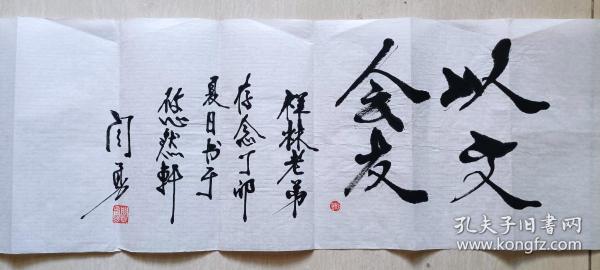 以文
会友
祥林老弟
存念丁卯
夏日书于
悠然軒
闫勇
孔夫子旧书网
www.kongfz.com